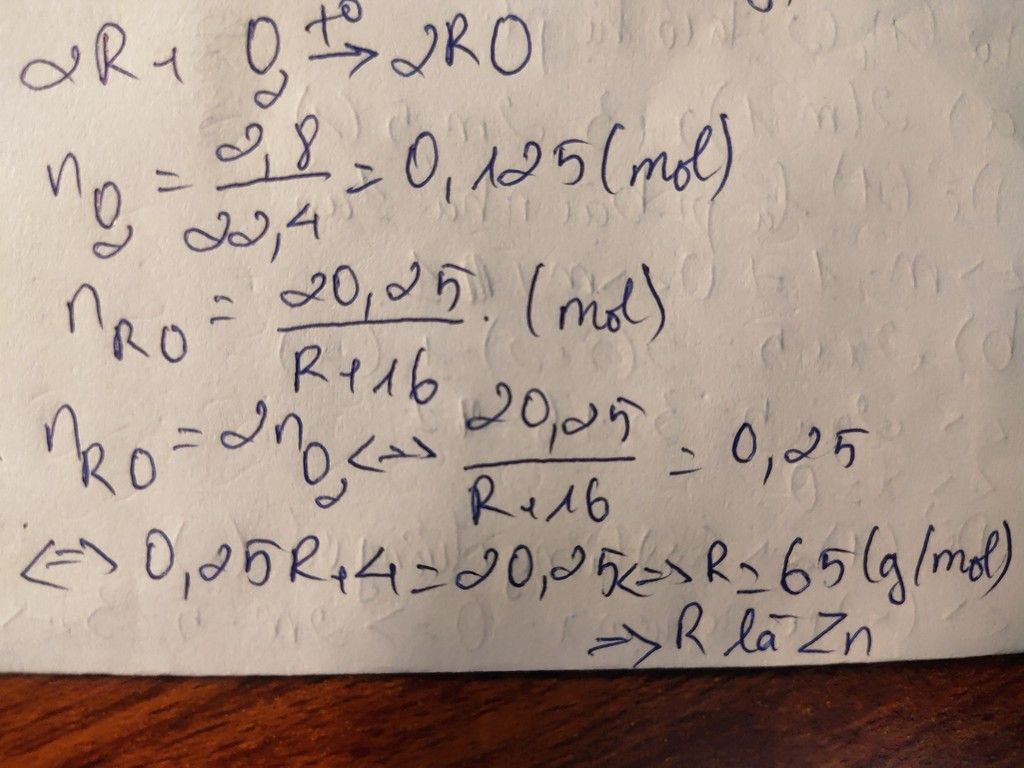 2R + O₂ →t⁰ 2RO
n_O₂ = 2,8/22,4 = 0,125 (mol)
n_RO = 20,25/(R+16) . (mol)
n_RO = 2n_O₂ <=> 20,25/(R+16) = 0,25
<=> 0,25R+4 = 20,25 <=> R = 65 (g/mol)
=> R là Zn